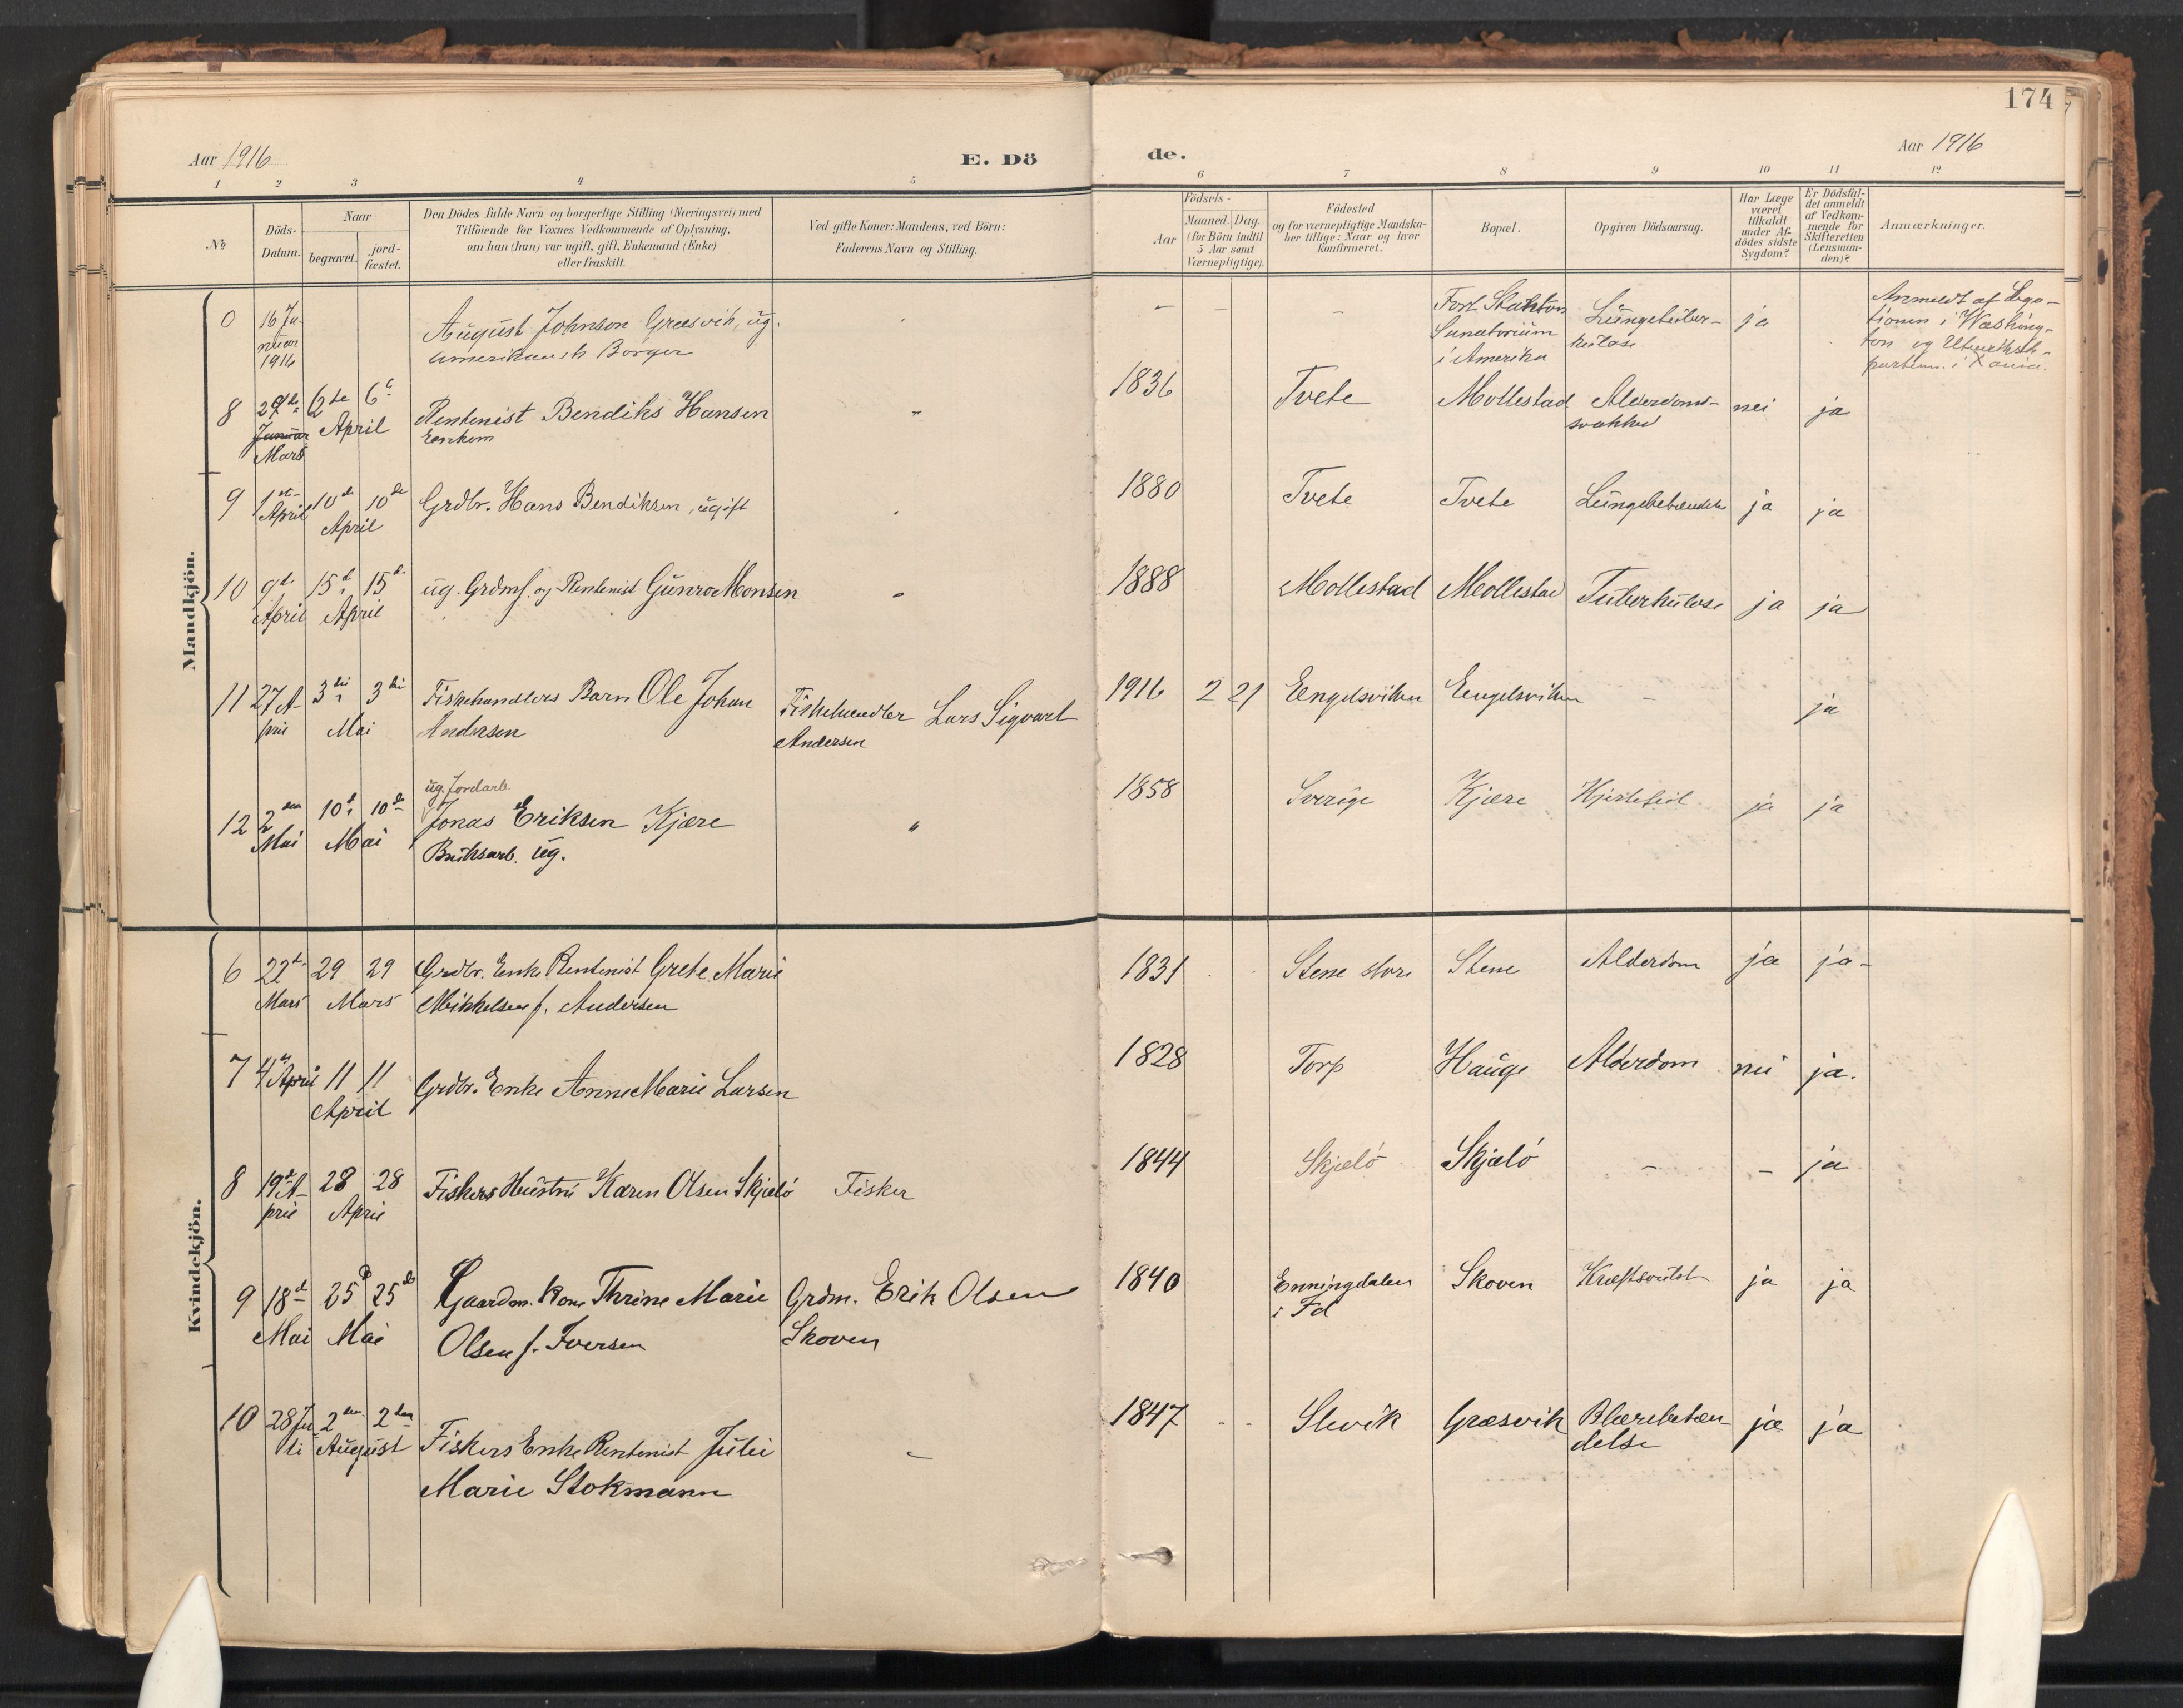 174
Aar 1916
E. Dö
de.
Aar 1916
1 2 3 4 5 6 7 8 9 10 11 12
No
Döds-Datum.
Naar
begravet. jord-fæstet.
Den Dödes fulde Navn og borgerlige Stilling (Næringsvei) med
Tilföiende for Voxnes Vedkommende af Oplysning,
om han (hun) var ugift, gift, Enkemand (Enke)
eller fraskilt.
Ved gifte Koner: Mandens, ved Börn:
Faderens Navn og Stilling.
Födsels-
Aar
Maaned. Dag.
(for Börn indtil
5 Aar samt
Værnepligtige).
Födested
og for værnepligtige Mandska-
ber tillige: Naar og hvor
konfirmeret.
Bopæl.
Opgiven Dödsaarsag.
Har Læge
været
tilkaldt
under Af-
dödes sidste
Sygdom?
Er Dödsfal-
det anmeldt
af Vedkom-
mende for
Skifteretten
(Lensman-
den)?
Anmærkninger.
Mandkjön.
0 16 Ja-
nuar
1916
August Johnson Græsvik, ug.
amerikansk Borger
- - -
Fort Stanton
Sanatorium
i Amerika
Lungetuber-
kulose
ja
Anmeldt af Lega-
tionen i Washing-
ton og Utenriksde-
partem. i Xania.
8 29de Januar Mars 6te 6te April
Rentenist Bendiks Hansen
Enkem
"
1836 Tvete Mollestad Alderdoms-
svakhed
nei ja
9 1ste April 10de 10de April
Grdbr. Hans Bendiksen, ugift
1880 Tvete Tvete Lungebetændelse ja ja
10 9de April 15de 15de April
ug. Grdmf. og Rentenist Gunro Monsen
"
1888 Mollestad Mollestad Tuberkulose ja ja
11 27 A-
pril 3die 3die Mai
Fiskehandlers Barn Ole Johan
Andersen
Fiskehandler Lars Sigvart
Andersen
1916 2 21 Engelsviken Engelsviken - ja
12 2den Mai 10de 10de Mai
ug. Jordarb.
Jonas Eriksen Kjære
Bruksarb. ug.
"
1858 Sverige Kjære Hjertefeil ja ja
Kvindekjön.
6 22de Mars 29 29 Mars
Grdbr. Enke Rentenist Grete Marie
Mikkelsen f. Andersen
1831 Stene store Stene Alderdom ja ja-
7 4de April 11 11 April
Grdbr. Enke Anne Marie Larsen
1828 Torp Hauge Alderdom nei ja.
8 19de A-
pril 28 28 April
Fiskers Hustru Karen Olsen Skjælö
Fisker
1844 Skjælö Skjælö - - ja
9 18de Mai 25de 25de Mai
Gaardm. Kone Thrine Marie
Olsen f. Iversen
Grdm. Erik Olsen
Skoven
1840 Enningdalen
i Fd
Skoven Kræftsvulst ja ja
10 28 Ju-
li 2den 2den August
Fiskers Enke Rentenist Julie
Marie Stokmann
-
1847 - - Slevik Græsvik Blærebetæn
delse
ja ja